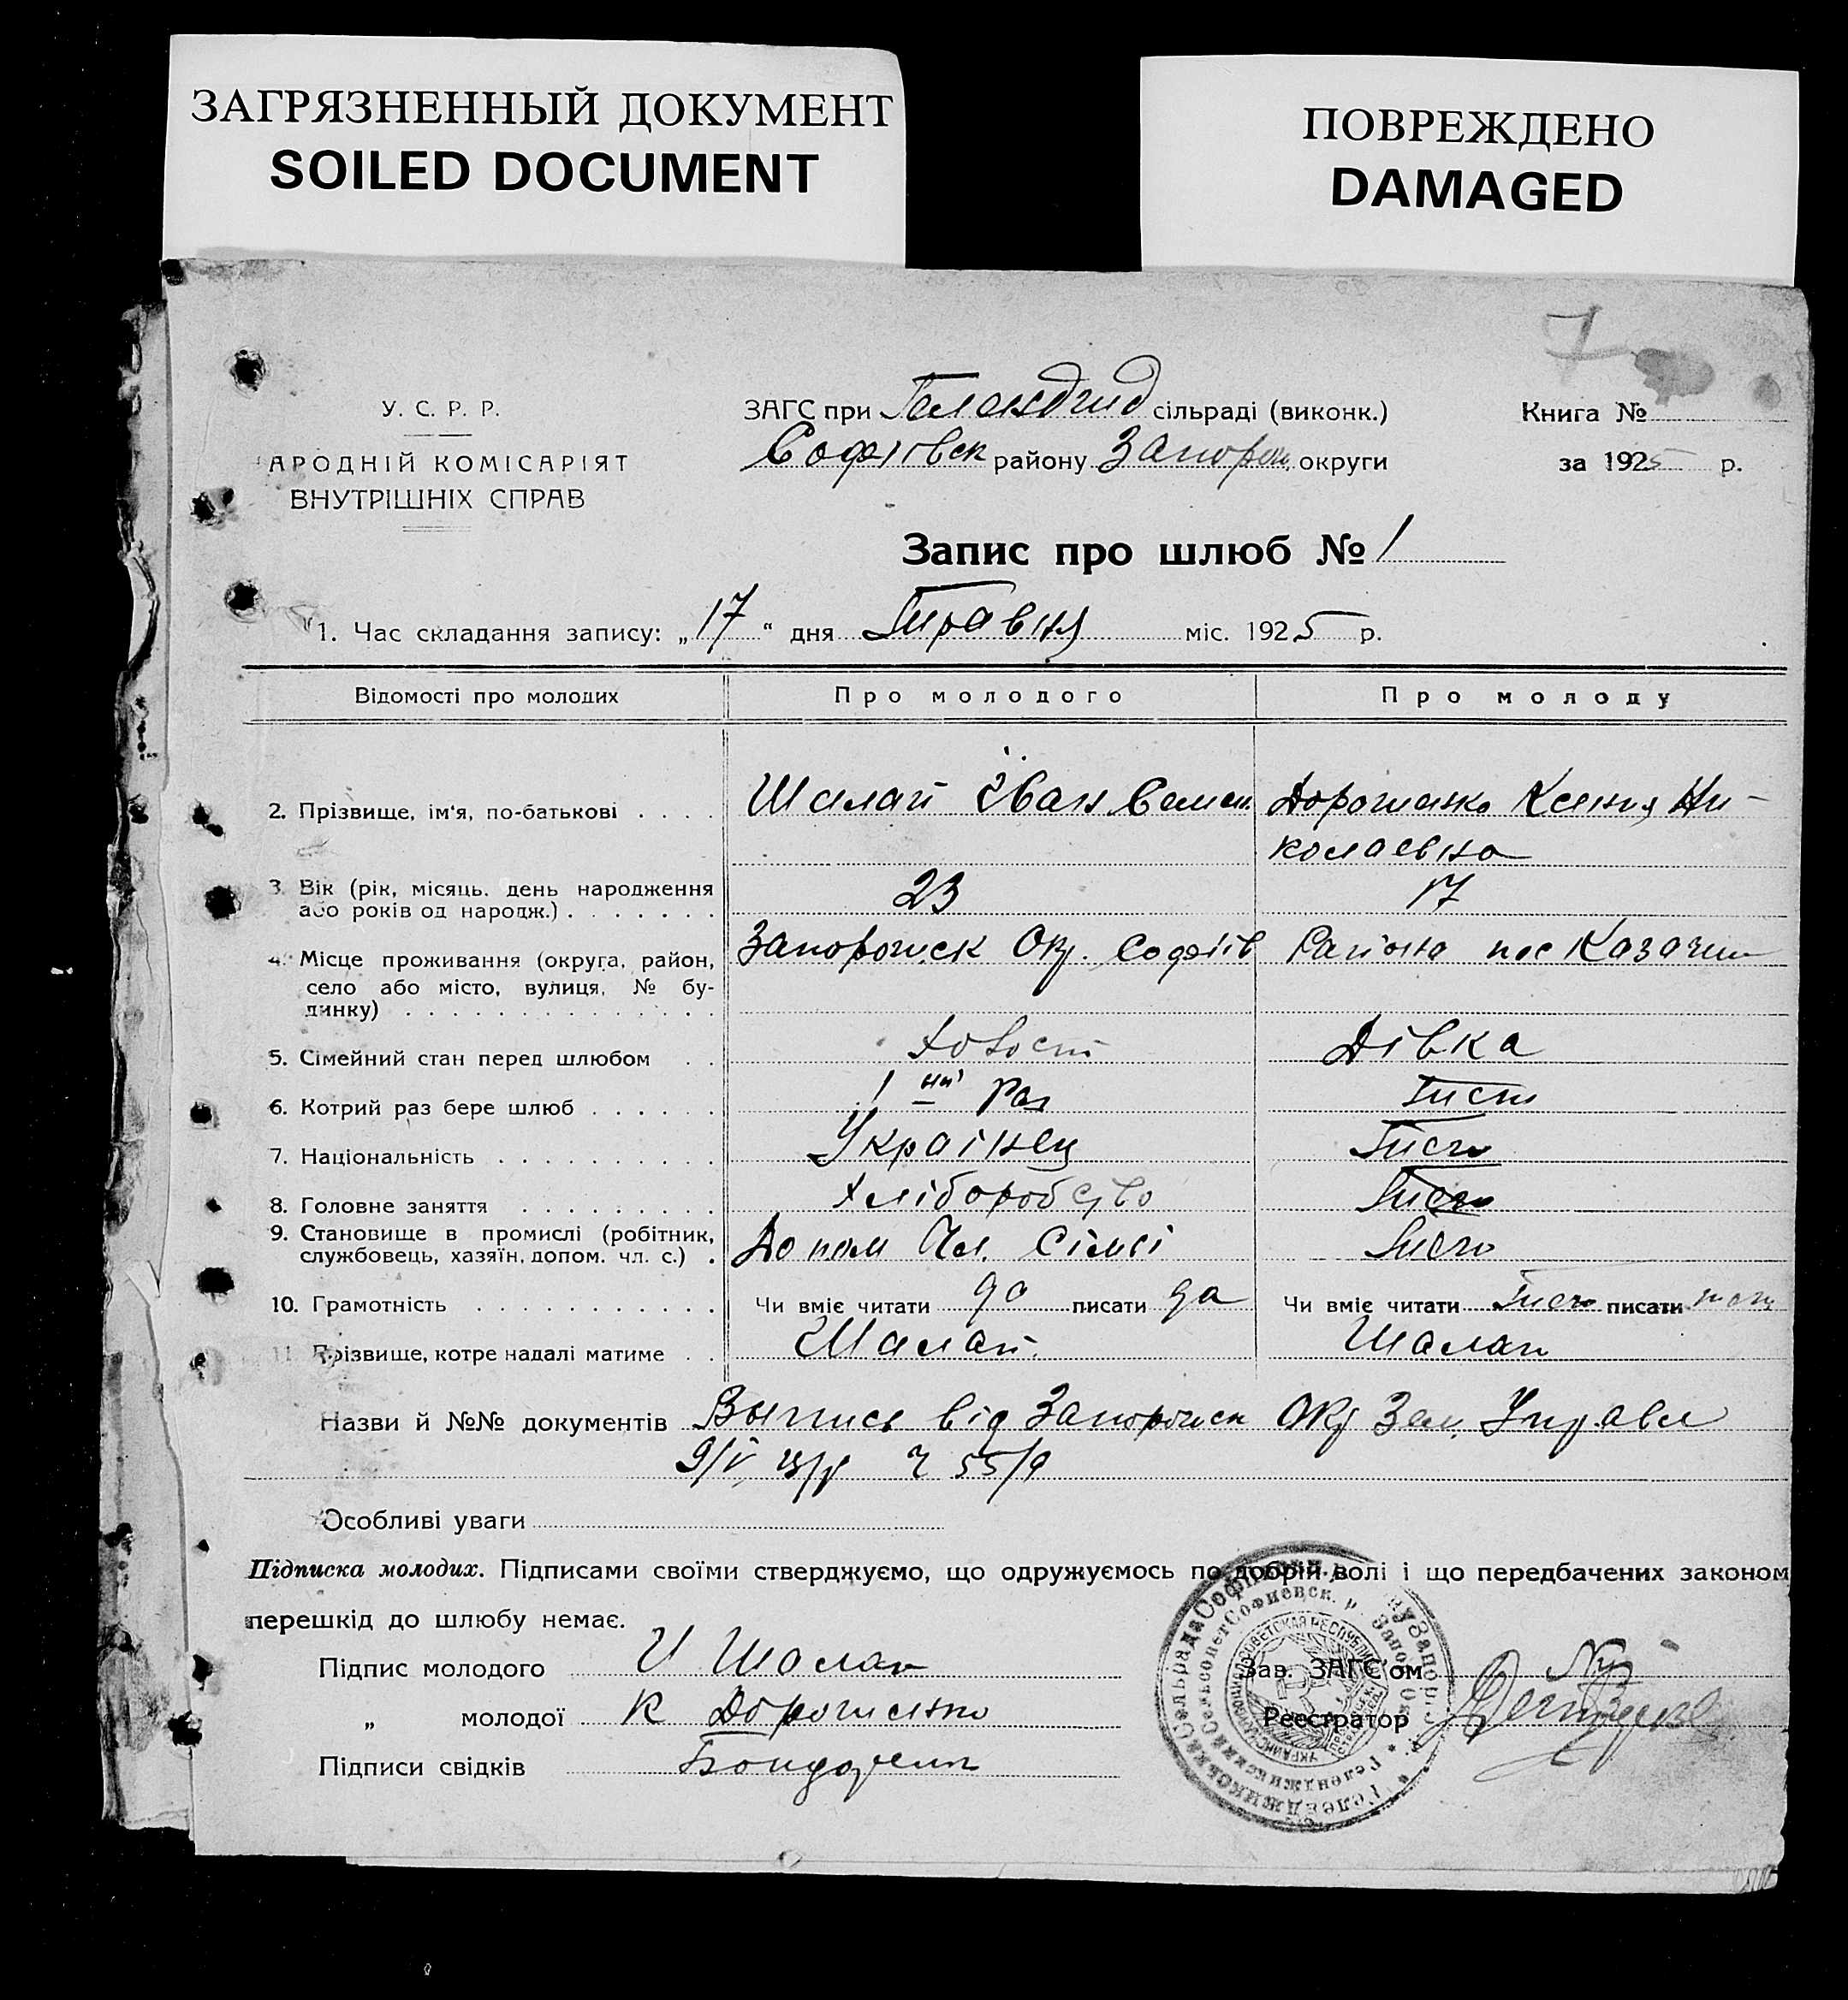 ЗАГРЯЗНЕННЫЙ ДОКУМЕНТ
SOILED DOCUMENT
ПОВРЕЖДЕНО
DAMAGED
7
У. С. Р. Р.
АРОДНІЙ КОМІСАРІЯТ
ВНУТРІШНІХ СПРАВ
ЗАГС при сільраді (виконк.)
Софіівск району Запорож. округи
Книга №
за 1925 р.
Запис про шлюб № 1
1. Час складання запису: „17“ дня Травня міс. 1925 р.
Відомості про молодих
Про молодого
Про молоду
2. Прізвище, ім'я, по-батькові . . . .
Шалай Іван Семен.
Дорошенко Ксения Ни-
колаевна
3. Вік (рік, місяць, день народження
або років од народж.) . . . . . . .
23
17
4. Місце проживання (округа, район,
село або місто, вулиця, № бу-
динку) . . . . . . . . . . . . . .
Запорожск Окр. Софіів
Раіона пос Казачи
5. Сімейний стан перед шлюбом . .
Холост
Дівка
6. Котрий раз бере шлюб . . . . . .
1 ий Раз
Тисто
7. Національність . . . . . . . . . .
Украінец
Тисто
8. Головне заняття . . . . . . . . .
Хліборобство
Тисто
9. Становище в промислі (робітник,
службовець, хазяїн, допом. чл. с.) .
Допом Чл. Сімьі
Тисто
10. Грамотність . . . . . . . . . . .
Чи вміє читати да писати да
Чи вміє читати Тисто писати тисто
11. Прізвище, котре надалі матиме . .
Шалай.
Шалай
Назви й №№ документів Выпись від Запорожск Окр Зем. Управл
ч 55/9
Особливі уваги
Підписка молодих. Підписами своїми стверджуємо, що одружуємось по добрій волі і що передбачених законом
перешкід до шлюбу немає.
Підпис молодого И Шалай
„ молодої К Дорошенко
Підписи свідків
Зав. ЗАГС'ом
Реєстратор